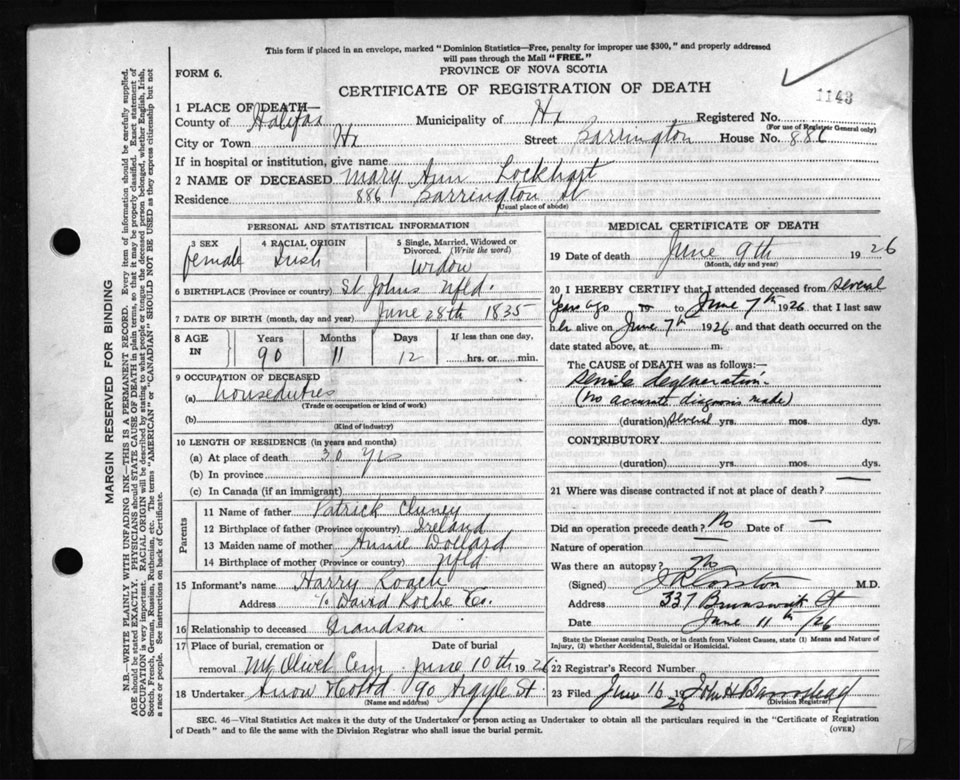 This form if placed in an envelope, marked "Dominion Statistics—Free, penalty for improper use $300," and properly addressed
will pass through the Mail "FREE."
FORM 6.
PROVINCE OF NOVA SCOTIA
CERTIFICATE OF REGISTRATION OF DEATH
1143
1 PLACE OF DEATH—
County of Halifax Municipality of Hx Registered No.
(For use of Registrar General only)
City or Town Hx Street Barrington House No. 886
If in hospital or institution, give name
2 NAME OF DECEASED Mary Ann Lockhart
Residence 886 Barrington St
(Usual place of abode)
PERSONAL AND STATISTICAL INFORMATION
3 SEX
female
4 RACIAL ORIGIN
Irish
5 Single, Married, Widowed or
Divorced. (Write the word)
Widow
6 BIRTHPLACE (Province or country) St Johns Nfld.
7 DATE OF BIRTH (month, day and year) June 28th 1835
8 AGE
IN
Years
90
Months
11
Days
12
If less than one day,
hrs. or min.
9 OCCUPATION OF DECEASED
(a) houseduties
(Trade or occupation or kind of work)
(b)
(Kind of industry)
10 LENGTH OF RESIDENCE (in years and months)
(a) At place of death 30 yrs
(b) In province
(c) In Canada (if an immigrant)
Parents
11 Name of father Patrick Cluney
12 Birthplace of father (Province or country) Ireland
13 Maiden name of mother Annie Dollard
14 Birthplace of mother (Province or country) Nfld
15 Informant's name Harry Roach
Address % David Roche Co.
16 Relationship to deceased Grandson
17 Place of burial, cremation or Date of burial
removal Mt Olivet Cem June 10th 1926
18 Undertaker Snow & Co Ltd 90 Argyle St.
(Name and address)
MEDICAL CERTIFICATE OF DEATH
19 Date of death June 9th 1926
(Month, day and year)
20 I HEREBY CERTIFY that I attended deceased from several
years ago to June 7th 1926 that I last saw
her alive on June 7th 1926 and that death occurred on the
date stated above, at m.
The CAUSE of DEATH was as follows:
Senile degeneration.
(No accurate diagnosis made)
(duration) several yrs. mos. dys.
CONTRIBUTORY
(duration) yrs. mos. dys.
21 Where was disease contracted if not at place of death? —
Did an operation precede death? No Date of —
Nature of operation —
Was there an autopsy? No
(Signed) M.D.
Address 337 Brunswick St
Date June 11th /26
State the Disease causing Death, or in death from Violent Causes, state (1) Means and Nature of
Injury, (2) whether Accidental, Suicidal or Homicidal.
22 Registrar's Record Number
23 Filed June 16 1926 John H Barnstead
(Division Registrar)
SEC. 46—Vital Statistics Act makes it the duty of the Undertaker or person acting as Undertaker to obtain all the particulars required in the "Certificate of Registration
of Death" and to file the same with the Division Registrar who shall issue the burial permit.
(OVER)
MARGIN RESERVED FOR BINDING
N.B.—WRITE PLAINLY WITH UNFADING INK—THIS IS A PERMANENT RECORD. Every item of information should be carefully supplied.
AGE should be stated EXACTLY. PHYSICIANS should STATE CAUSE OF DEATH in plain terms, so that it may be properly classified. Exact statement of
OCCUPATION is very important. RACIAL ORIGIN will be described by stating to what people or tongue the deceased person belonged, whether English, Irish,
Scotch, French, German, Russian, Ruthenian, etc. The terms "AMERICAN" or "CANADIAN" SHOULD NOT BE USED as they express citizenship but not
a race or people. See instructions on back of Certificate.